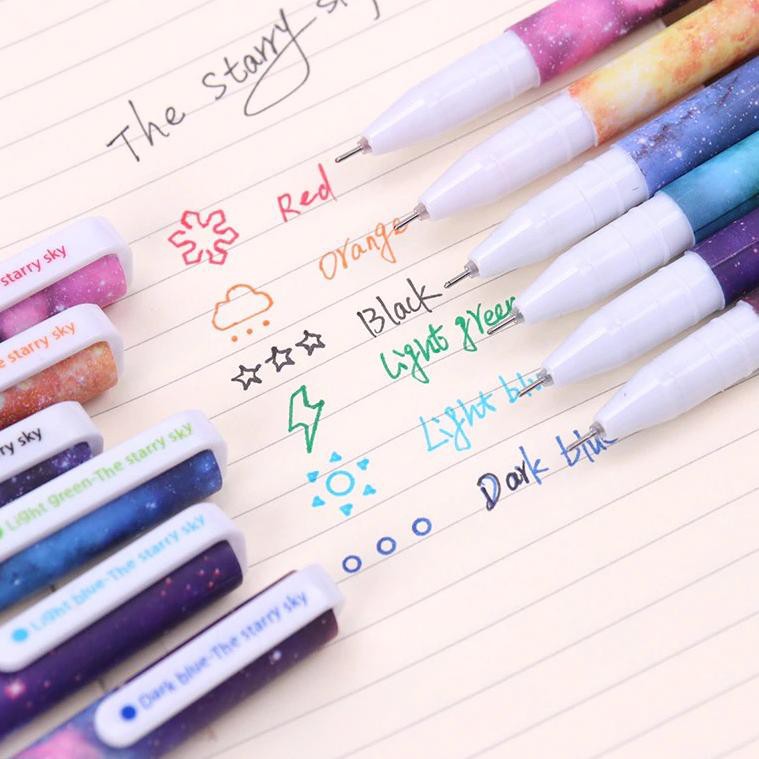 The starry sky
Red
Orange
Black
Light green
Light blue
Dark blue
starry sky
starry sky
sky
Light green-The starry sky
Light blue-The starry sky
Dark blue-The starry sky